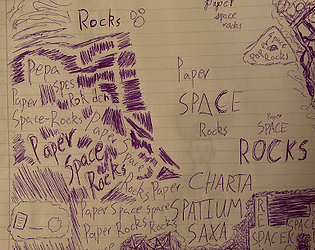 Rocks
Paper
space
rocks
Paper Space
Rocks
Pepa
Spes
Paper Rokden
Space-Rocks
Paper
Space
Rocks
Paper
Space
Rocks
Paper
SPACE
Rocks
Paper
SPACE
ROCKS
Rocks Paper
Paper Space Space
Paper Rocks Rocks
CHARTA
SPATIUM
SAXA
SPACE